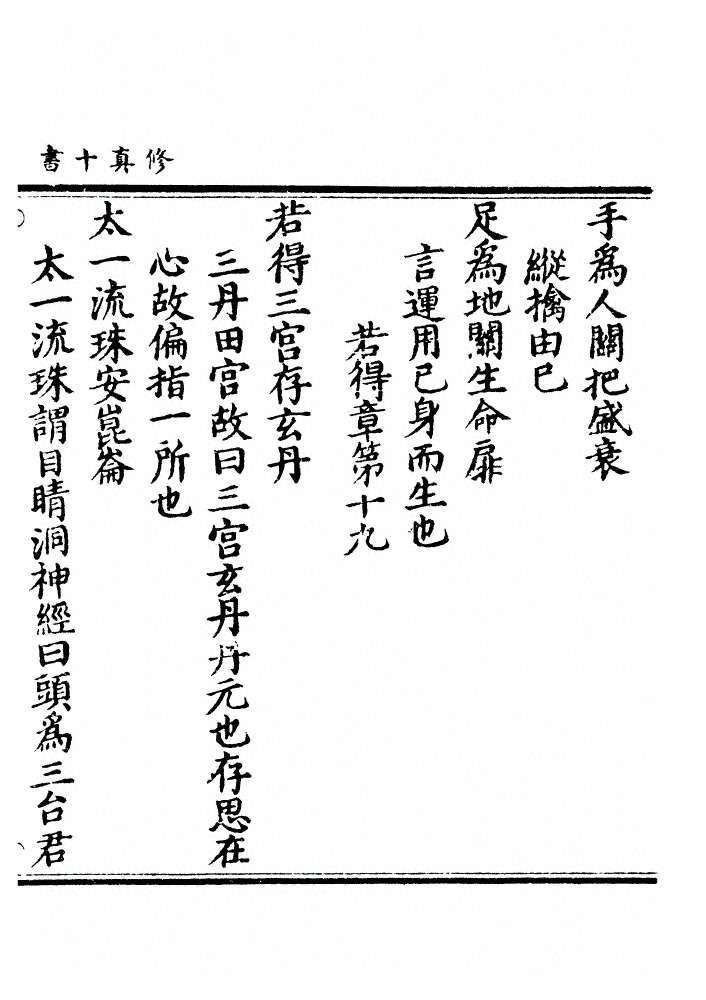 修真十書
手爲人關把盛衰
縱擒由巳
足爲地關生命扉
言運用已身而生也
若得章第十九
若得三宮存玄丹
三丹田宮故曰三宮玄丹丹元也存思在
心故偏指一所也
太一流珠安崑崙
太一流珠謂目睛洞神經曰頭爲三台君